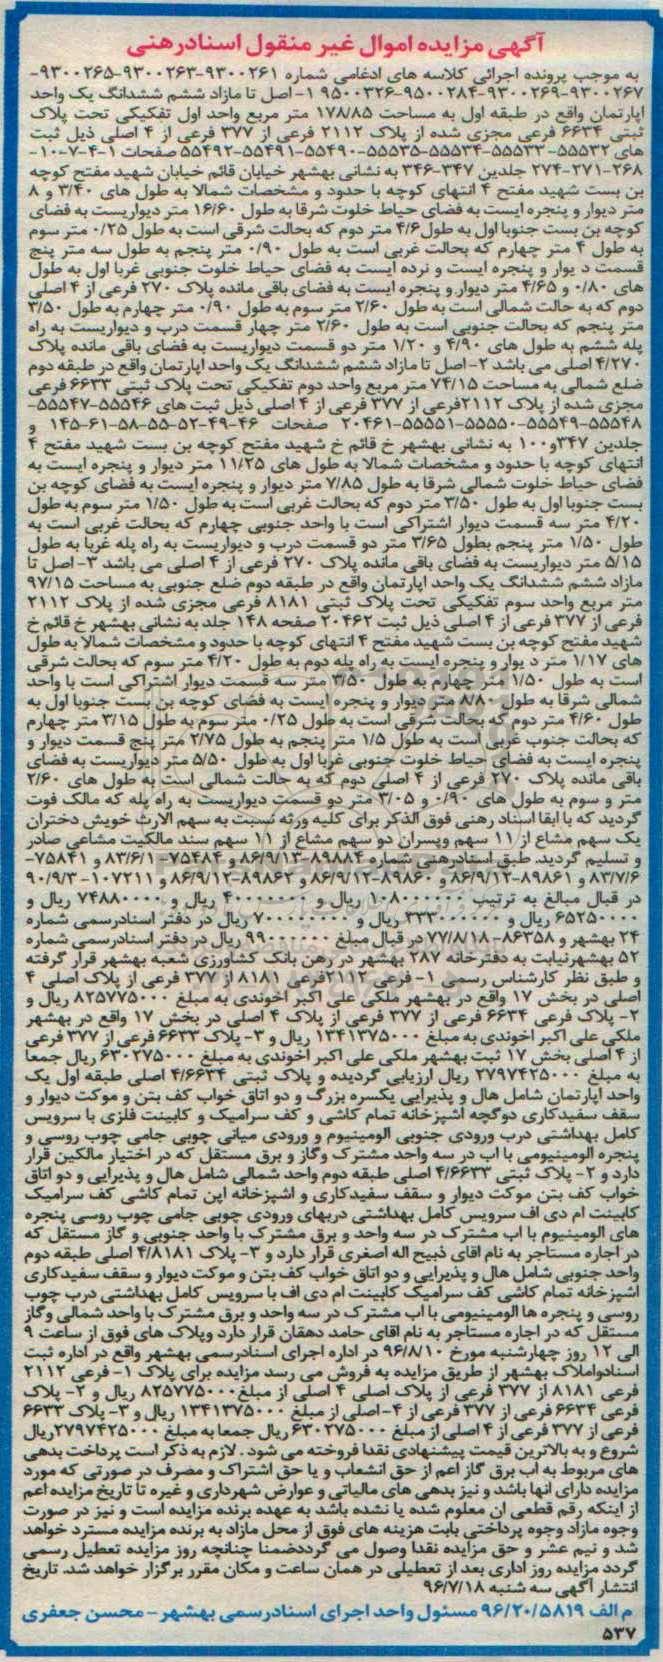 آگهی مزایده اموال غیر منقول اسناد رهنی
به موجب پرونده اجرائی کلاسه های ادغامی شماره ۹۳۰۰۲۶۱-۹۳۰۰۲۶۳-۹۳۰۰۲۶۵-
۹۳۰۰۲۶۷-۹۳۰۰۲۶۹-۹۵۰۰۲۸۴-۹۵۰۰۳۲۶ ۱- اصل تا مازاد ششم ششدانگ یک واحد
اپارتمان واقع در طبقه اول به مساحت ۱۷۸/۸۵ متر مربع واحد اول تفکیکی تحت پلاک
ثبتی ۶۶۳۴ فرعی مجزی شده از پلاک ۲۱۱۲ فرعی از ۳۷۷ فرعی از ۴ اصلی ذیل ثبت
های ۵۵۵۳۲- ۵۵۵۳۳-۵۵۵۳۴-۵۵۵۳۵-۵۵۴۹۰-۵۵۴۹۱-۵۵۴۹۲ صفحات ۱-۴-۷-۱۰-
۲۶۸-۲۷۱-۲۷۴ جلدین ۳۴۷-۳۴۶ به نشانی بهشهر خیابان قائم خیابان شهید مفتح کوچه
بن بست شهید مفتح ۴ انتهای کوچه با حدود و مشخصات شمالا به طول های ۳/۴۰ و ۸
متر دیوار و پنجره ایست به فضای حیاط خلوت شرقا به طول ۱۶/۶۰ متر دیواریست به فضای
کوچه بن بست جنوبا اول به طول ۴/۶ متر دوم که بحالت شرقی است به طول ۰/۲۵ متر سوم
به طول ۴ متر چهارم که بحالت غربی است به طول ۰/۹۰ متر پنجم به طول سه متر پنج
قسمت د یوار و پنجره ایست و نرده ایست به فضای حیاط خلوت جنوبی غربا اول به طول
های ۰/۸۰ و ۴/۶۵ متر دیوار و پنجره ایست به فضای باقی مانده پلاک ۲۷۰ فرعی از ۴ اصلی
دوم که به حالت شمالی است به طول ۲/۶۰ متر سوم به طول ۰/۹۰ متر چهارم به طول ۳/۵۰
متر پنجم که بحالت جنوبی است به طول ۲/۶۰ متر چهار قسمت درب و دیواریست به راه
پله ششم به طول های ۴/۹۰ و ۱/۲۰ متر دو قسمت دیواریست به فضای باقی مانده پلاک
۴/۲۷۰ اصلی می باشد ۲- اصل تا مازاد ششم ششدانگ یک واحد اپارتمان واقع در طبقه دوم
ضلع شمالی به مساحت ۷۴/۱۵ متر مربع واحد دوم تفکیکی تحت پلاک ثبتی ۶۶۳۳ فرعی
مجزی شده از پلاک ۲۱۱۲فرعی از ۳۷۷ فرعی از ۴ اصلی ذیل ثبت های ۵۵۵۴۶-۵۵۵۴۷-
۵۵۵۴۸-۵۵۵۴۹-۵۵۵۵۰-۵۵۵۵۱-۲۰۴۶۱ صفحات ۴۶-۴۹-۵۲-۵۵-۵۸-۶۱-۱۴۵ و
جلدین ۳۴۷و۱۰۰ به نشانی بهشهر خ قائم خ شهید مفتح کوچه بن بست شهید مفتح ۴
انتهای کوچه با حدود و مشخصات شمالا به طول های ۱۱/۲۵ متر دیوار و پنجره ایست به
فضای حیاط خلوت شمالی شرقا به طول ۷/۸۵ متر دیوار و پنجره ایست به فضای کوچه بن
بست جنوبا اول به طول ۳/۵۰ متر دوم که بحالت غربی است به طول ۱/۵۰ متر سوم به طول
۴/۲۰ متر سه قسمت دیوار اشتراکی است با واحد جنوبی چهارم که بحالت غربی است به
طول ۱/۵۰ متر پنجم بطول ۳/۶۵ متر دو قسمت درب و دیواریست به راه پله غربا به طول
۵/۱۵ متر دیواریست به فضای باقی مانده پلاک ۲۷۰ فرعی از ۴ اصلی می باشد ۳- اصل تا
مازاد ششم ششدانگ یک واحد اپارتمان واقع در طبقه دوم ضلع جنوبی به مساحت ۹۷/۱۵
متر مربع واحد سوم تفکیکی تحت پلاک ثبتی ۸۱۸۱ فرعی مجزی شده از پلاک ۲۱۱۲
فرعی از ۳۷۷ فرعی از ۴ اصلی ذیل ثبت ۲۰۴۶۲ صفحه ۱۴۸ جلد به نشانی بهشهر خ قائم خ
شهید مفتح کوچه بن بست شهید مفتح ۴ انتهای کوچه با حدود و مشخصات شمالا به طول
های ۱/۱۷ متر د یوار و پنجره ایست به راه پله دوم به طول ۴/۲۰ متر سوم که بحالت شرقی
است به طول ۱/۵۰ متر چهارم به طول ۳/۵۰ متر سه قسمت دیوار اشتراکی است با واحد
شمالی شرقا به طول ۸/۸۰ متر دیوار و پنجره ایست به فضای کوچه بن بست جنوبا اول به
طول ۴/۶۰ متر دوم که بحالت شرقی است به طول ۰/۲۵ متر سوم به طول ۳/۱۵ متر چهارم
که بحالت جنوب غربی است به طول ۱/۵ متر پنجم به طول ۲/۷۵ متر پنج قسمت دیوار و
پنجره ایست به فضای حیاط خلوت جنوبی غربا اول به طول ۵/۵۰ متر دیواریست به فضای
باقی مانده پلاک ۲۷۰ فرعی از ۴ اصلی دوم که به حالت شمالی است به طول های ۲/۶۰
متر و سوم به طول های ۰/۹۰ و ۳/۰۵ متر دو قسمت دیواریست به راه پله که مالک فوت
گردید که با ابقا اسناد رهنی فوق الذکر برای کلیه ورثه نسبت به سهم الارث خویش دختران
یک سهم مشاع از ۱۱ سهم وپسران دو سهم مشاع از ۱۱ سهم سند مالکیت مشاعی صادر
و تسلیم گردید. طبق اسنادرهنی شماره ۸۹۸۸۴-۸۶/۹/۱۳ و ۷۵۴۸۴-۸۳/۶/۱ و ۷۵۸۴۱-
۸۳/۷/۶ و ۸۹۸۶۱-۸۶/۹/۱۲ و ۸۹۸۶۰-۸۶/۹/۱۲ و ۸۹۸۶۲-۸۶/۹/۱۲ و ۱۰۷۲۱۱-۹۰/۹/۳
در قبال مبالغ به ترتیب ۱۰۸۰۰۰۰۰۰ ریال و ۴۰۰۰۰۰۰۰ ریال و ۷۴۸۸۰۰۰۰ ریال و
۶۵۲۵۰۰۰۰ ریال و ۳۳۳۰۰۰۰۰۰ ریال و ۷۰۰۰۰۰۰۰۰ ریال در دفتر اسنادرسمی شماره
۲۴ بهشهر و ۸۶۳۵۸-۷۷/۸/۱۸ در قبال مبلغ ۹۹۰۰۰۰۰۰ ریال در دفتر اسنادرسمی شماره
۵۲ بهشهرنیابت به دفترخانه ۲۸۷ بهشهر در رهن بانک کشاورزی شعبه بهشهر قرار گرفته
و طبق نظر کارشناس رسمی ۱- فرعی ۲۱۱۲فرعی ۸۱۸۱ از ۳۷۷ فرعی از پلاک اصلی ۴
اصلی در بخش ۱۷ واقع در بهشهر ملکی علی اکبر اخوندی به مبلغ ۸۲۵۷۷۵۰۰۰ ریال و
۲- پلاک فرعی ۶۶۳۴ فرعی از ۳۷۷ فرعی از پلاک ۴ اصلی در بخش ۱۷ واقع در بهشهر
ملکی علی اکبر اخوندی به مبلغ ۱۳۴۱۳۷۵۰۰۰ ریال و ۳- پلاک ۶۶۳۳ فرعی از ۳۷۷ فرعی
از ۴ اصلی بخش ۱۷ ثبت بهشهر ملکی علی اکبر اخوندی به مبلغ ۶۳۰۲۷۵۰۰۰ ریال جمعا
به مبلغ ۲۷۹۷۴۲۵۰۰۰ ریال ارزیابی گردیده و پلاک ثبتی ۴/۶۶۳۴ اصلی طبقه اول یک
واحد اپارتمان شامل هال و پذیرایی یکسره بزرگ و دو اتاق خواب کف بتن و موکت دیوار و
سقف سفیدکاری دوگچه اشپزخانه تمام کاشی و کف سرامیک و کابینت فلزی با سرویس
کامل بهداشتی درب ورودی جنوبی الومینیوم و ورودی میانی چوبی جامی چوب روسی و
پنجره الومینیومی با اب در سه واحد مشترک وگاز و برق مستقل که در اختیار مالکین قرار
دارد و ۲- پلاک ثبتی ۴/۶۶۳۳ اصلی طبقه دوم واحد شمالی شامل هال و پذیرایی و دو اتاق
خواب کف بتن موکت دیوار و سقف سفیدکاری و اشپزخانه اپن تمام کاشی کف سرامیک
کابینت ام دی اف سرویس کامل بهداشتی دربهای ورودی چوبی جامی چوب روسی پنجره
های الومینیوم با اب مشترک در سه واحد و برق مشترک با واحد جنوبی و گاز مستقل که
در اجاره مستاجر به نام اقای ذبیح اله اصغری قرار دارد و ۳- پلاک ۴/۸۱۸۱ اصلی طبقه دوم
واحد جنوبی شامل هال و پذیرایی و دو اتاق خواب کف بتن و موکت دیوار و سقف سفیدکاری
اشپزخانه تمام کاشی کف سرامیک کابینت ام دی اف با سرویس کامل بهداشتی درب چوب
روسی و پنجره ها الومینیومی با اب مشترک در سه واحد و برق مشترک با واحد شمالی وگاز
مستقل که در اجاره مستاجر به نام اقای حامد دهقان قرار دارد وپلاک های فوق از ساعت ۹
الی ۱۲ روز چهارشنبه مورخ ۹۶/۸/۱۰ در اداره اجرای اسنادرسمی بهشهر واقع در اداره ثبت
اسنادواملاک بهشهر از طریق مزایده به فروش می رسد مزایده برای پلاک ۱- فرعی ۲۱۱۲
فرعی ۸۱۸۱ از ۳۷۷ فرعی از پلاک اصلی ۴ اصلی از مبلغ ۸۲۵۷۷۵۰۰۰ ریال و ۲- پلاک
فرعی ۶۶۳۴ فرعی از ۳۷۷ فرعی از ۴-اصلی از مبلغ ۱۳۴۱۳۷۵۰۰۰ ریال و ۳- پلاک ۶۶۳۳
فرعی از ۳۷۷ فرعی از ۴ اصلی از مبلغ ۶۳۰۲۷۵۰۰۰ ریال جمعا به مبلغ ۲۷۹۷۴۲۵۰۰۰ریال
شروع و به بالاترین قیمت پیشنهادی نقدا فروخته می شود . لازم به ذکر است پرداخت بدهی
های مربوط به اب برق گاز اعم از حق انشعاب و یا حق اشتراک و مصرف در صورتی که مورد
مزایده دارای انها باشد و نیز بدهی های مالیاتی و عوارض شهرداری و غیره تا تاریخ مزایده اعم
از اینکه رقم قطعی ان معلوم شده یا نشده باشد به عهده برنده مزایده است و نیز در صورت
وجوه مازاد وجوه پرداختی بابت هزینه های فوق از محل مازاد به برنده مزایده مسترد خواهد
شد و نیم عشر و حق مزایده نقدا وصول می گرددضمنا چنانچه روز مزایده تعطیل رسمی
گردد مزایده روز اداری بعد از تعطیلی در همان ساعت و مکان مقرر برگزار خواهد شد. تاریخ
انتشار آگهی سه شنبه ۹۶/۷/۱۸
م الف ۹۶/۲۰/۵۸۱۹ مسئول واحد اجرای اسنادرسمی بهشهر – محسن جعفری
۵۳۷